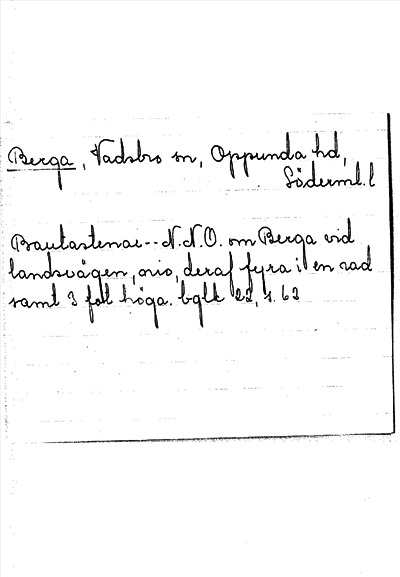 Berga, Vadsbro sn, Oppunda hd,
Söderml. l
Bautastenar-- N.N.O. om Berga vid
landsvägen, nio, deraf fyra i en rad
samt 3 fot höga. bglk 22, s. 62